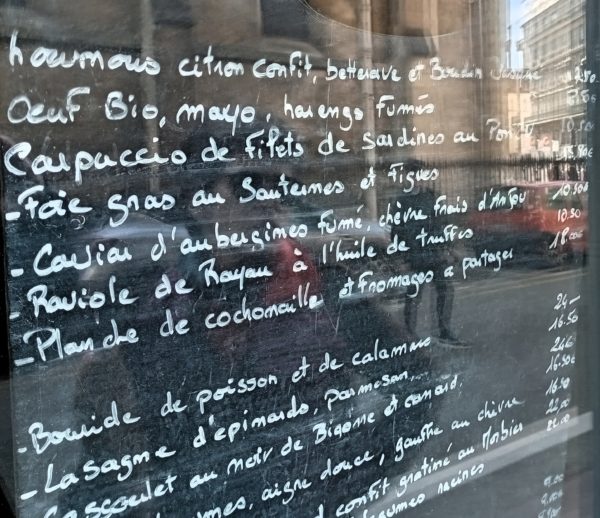 houmous citron confit, betterave et 12.50
Oeuf Bio, mayo, harengs fumés 8.50€
Carpuccio de filets de sardines au 10.50€
- Foie gras au Sauternes et figues
- Caviar d'aubergines fumé, chèvre frais d'Anjou 10.50€
- Raviole de Royan à l'huile de truffes 10.50
- Planche de cochonaille et fromages a partager 18.00€
- Bourride de poisson et de calamars 24-
- Lasagne d'epinards, parmesan 16.50
Cassoulet au noir de Bigorre et canard. 24€
aigre douce, gauffre au chèvre 16.50€
confit gratiné au Morbier
légumes racines